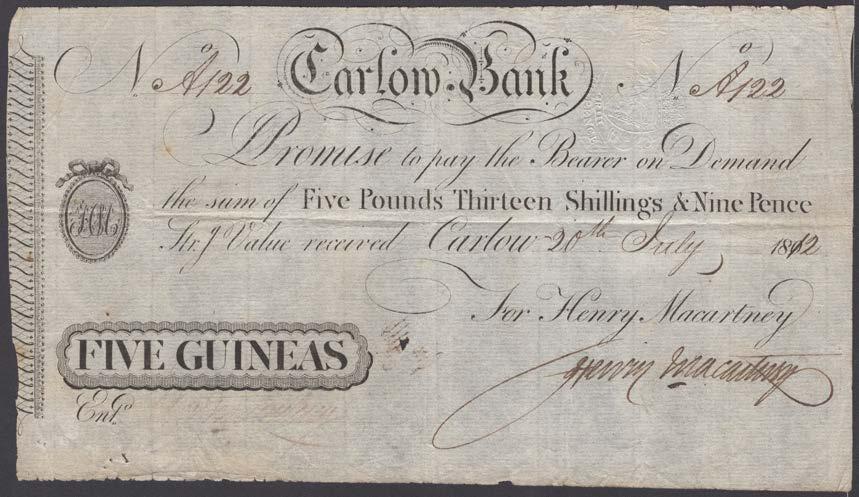 No A122 Carlow Bank No A122
I Promise to pay the Bearer on Demand
the sum of Five Pounds Thirteen Shillings & Nine Pence
Str.g Value received Carlow 20th July 1812
For Henry Macartney
FIVE GUINEAS
Henry Macartney
Entd